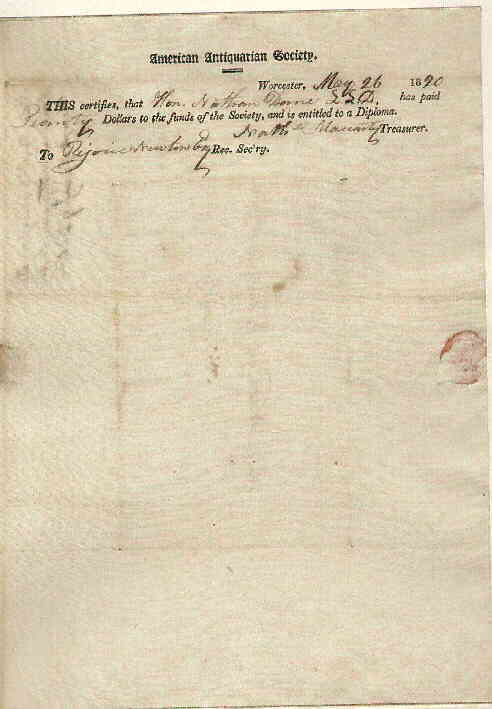 American Antiquarian Society.
Worcester, May 26 1820
THIS certifies, that Hon. Nathan Dane LLD. has paid
Twenty Dollars to the funds of the Society, and is entitled to a Diploma.
Nathl Maccarty Treasurer.
To Rejoice Newton Esq Rec. Sec'ry.